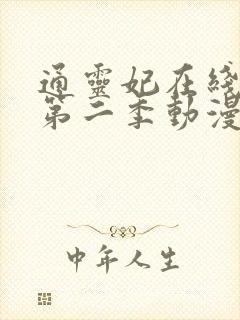 通靈妃在綫
第二季動漫
中年人生